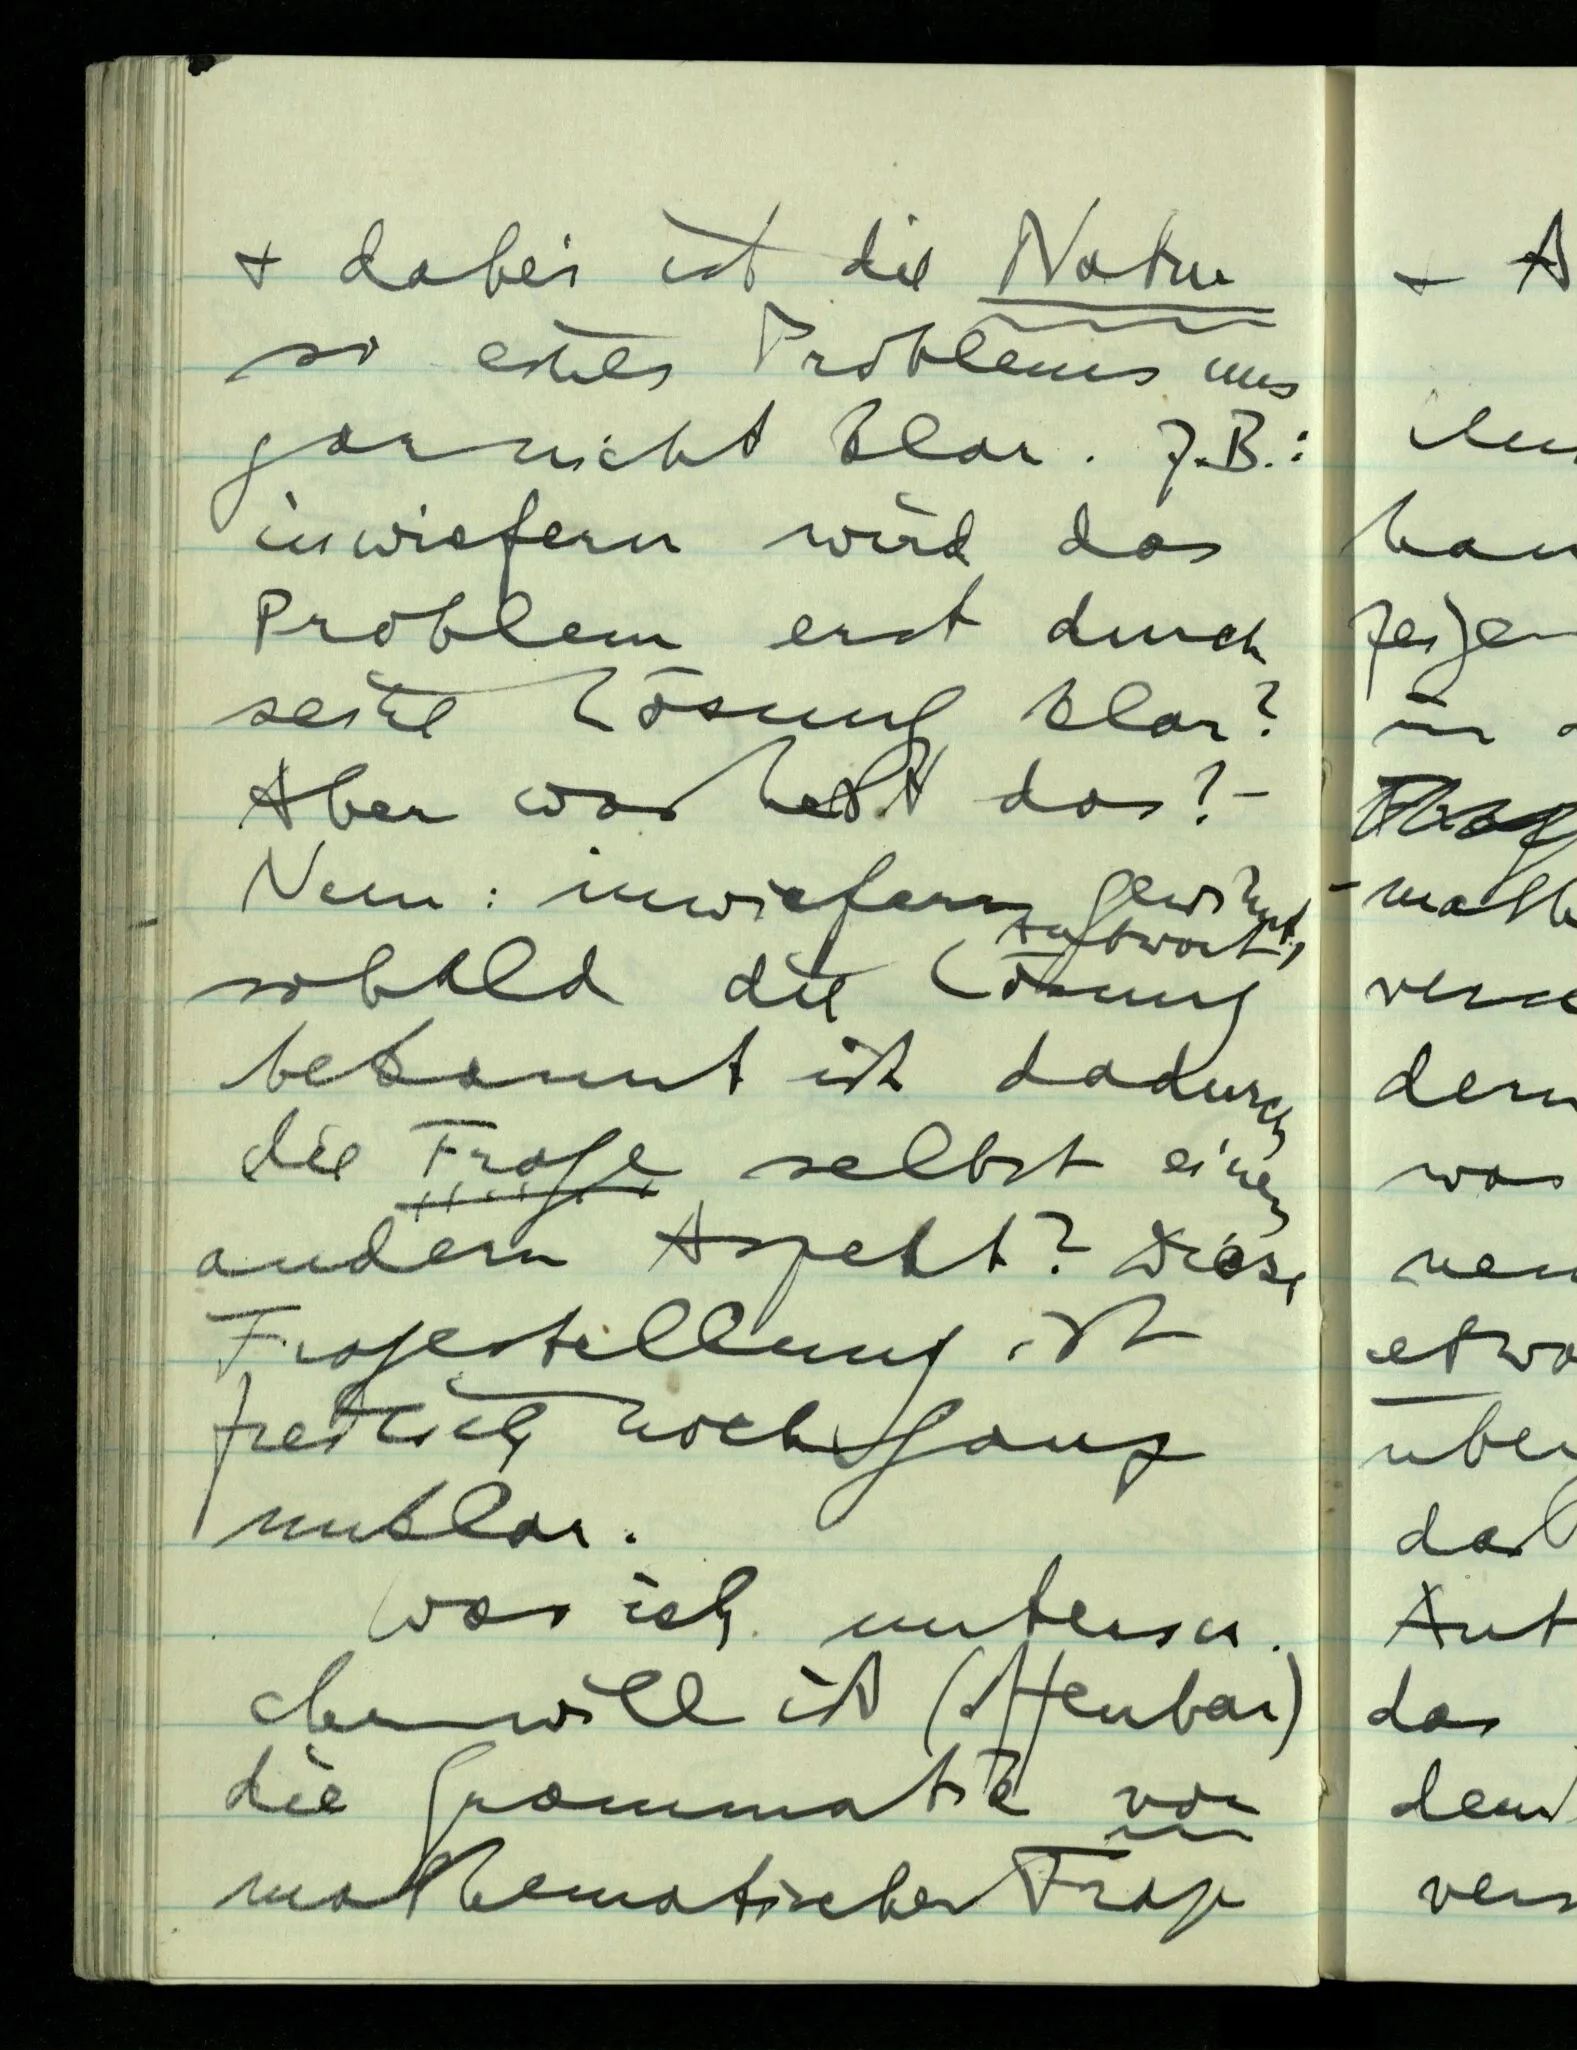 + dabei ist die Natur
so eines Problems uns
garnicht klar. Z.B.:
inwiefern wird das
Problem erst durch
seine Lösung klar?
Aber was heißt das? –
Nun: inwiefern gewinnt,
Antwort,
sobald die Lösung
bekannt ist dadurch
die Frage selbst einen
andern Aspekt? Diese
Fragestellung ist
freilich noch ganz
unklar.
Was ich untersu-
chen will ist (offenbar)
die Grammatik von
mathematischen Frag